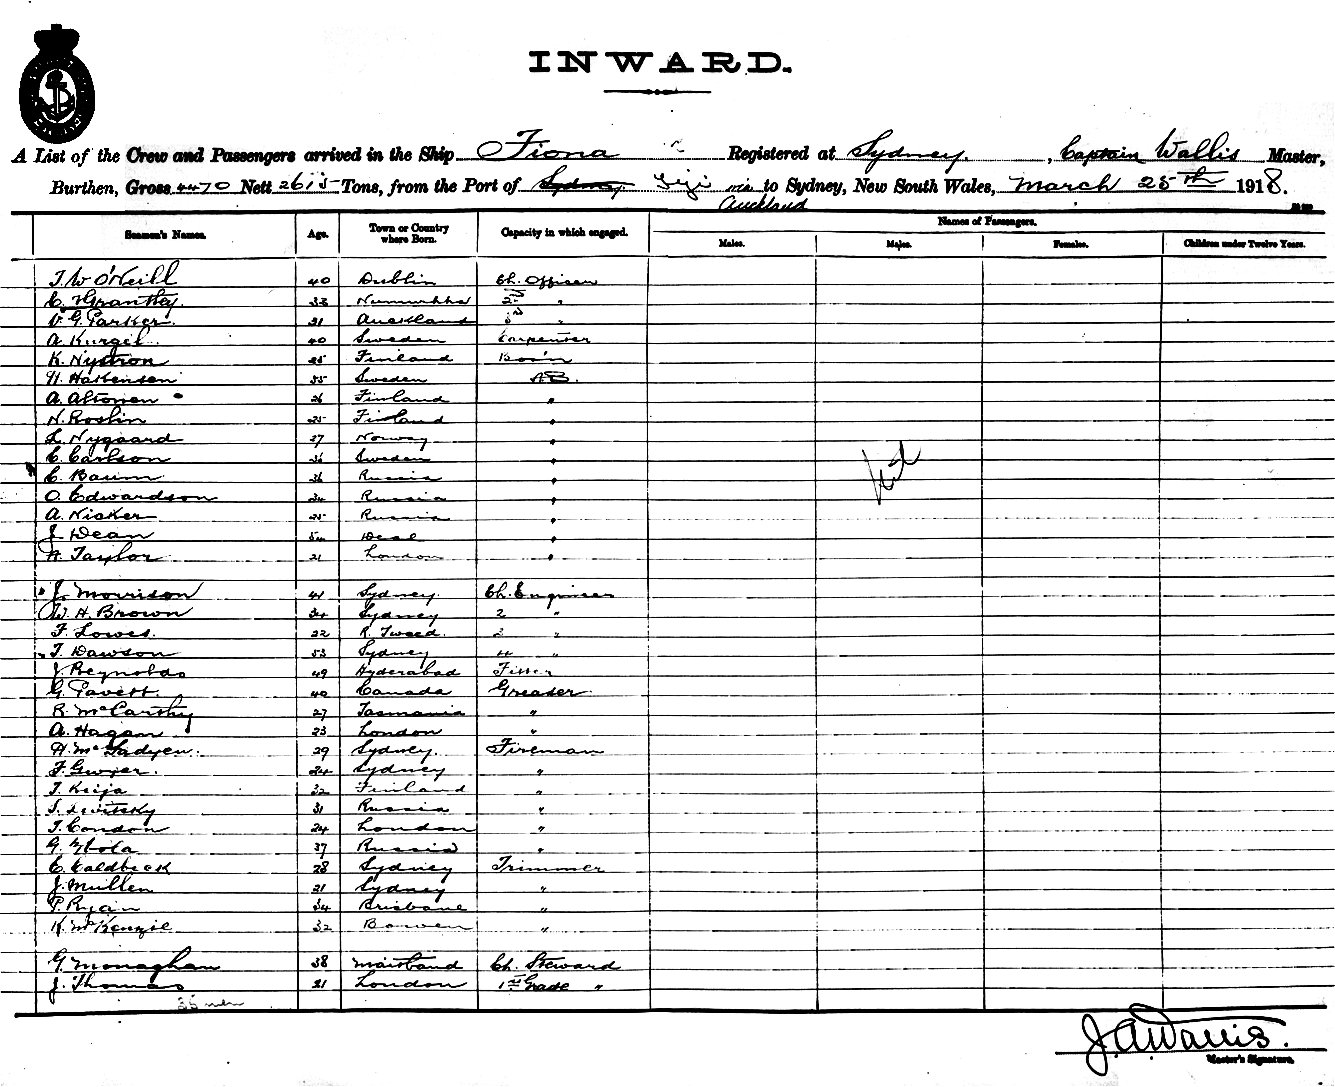 INWARD.
A List of the Crew and Passengers arrived in the Ship Fiona Registered at Sydney, Captain Wallis Master,
Burthen, Gross 4470 Nett 2615 Tons, from the Port of Sydney Fiji via Auckland to Sydney, New South Wales, March 25th 1918.
Seamen's Names. Age. Town or Country where Born. Capacity in which engaged. Names of Passengers.
Males. Males. Females. Children under Twelve Years.
T. W O'Neill 40 Dublin Ch. Officer
C. Grantley 33 2nd "
V. G. Parker 21 Auckland 3rd "
A. Kurgel 40 Sweden Carpenter
K. Nystron 25 Finland Bos'n
H. Haekensen 55 Sweden AB.
A. Altonen 26 Finland "
N. Roslin 25 Finland "
L. Nygaard 27 Norway "
C. Carlson 36 Sweden "
C. Baum 36 Russia "
O. Edwardson 34 Russia "
A. Nicker 25 Russia "
J. Dean Deal "
H. Taylor 21 London "
nil
J. Morrison 41 Sydney Ch. Engineer
W. H. Brown 34 Sydney 2 "
F. Lowes. 22 R. Tweed. 3 "
T. Dawson 53 Sydney 4 "
J. Reynolds 49 Hyderabad Fitter
G. Pavett. 40 Canada Greaser
R. McCarthy 27 Tasmania "
A. Hagan 23 London "
H. McFadyen. 29 Sydney. Fireman
F. Gwyer. 24 Sydney "
T. Keija 32 Finland "
S. Levitsky 31 Russia "
T. Condon 24 London "
G. 37 Russia "
E. Caldbeck 28 Sydney Trimmer
J. Mullen 21 Sydney "
P. Ryan 34 Brisbane "
K. McKenzie 32 Bowen "
G. Monaghan 38 Maitland Ch. Steward
J. Thomas 21 London 1st Grade "
35 men
J. A. Wallis.
Master's Signature.